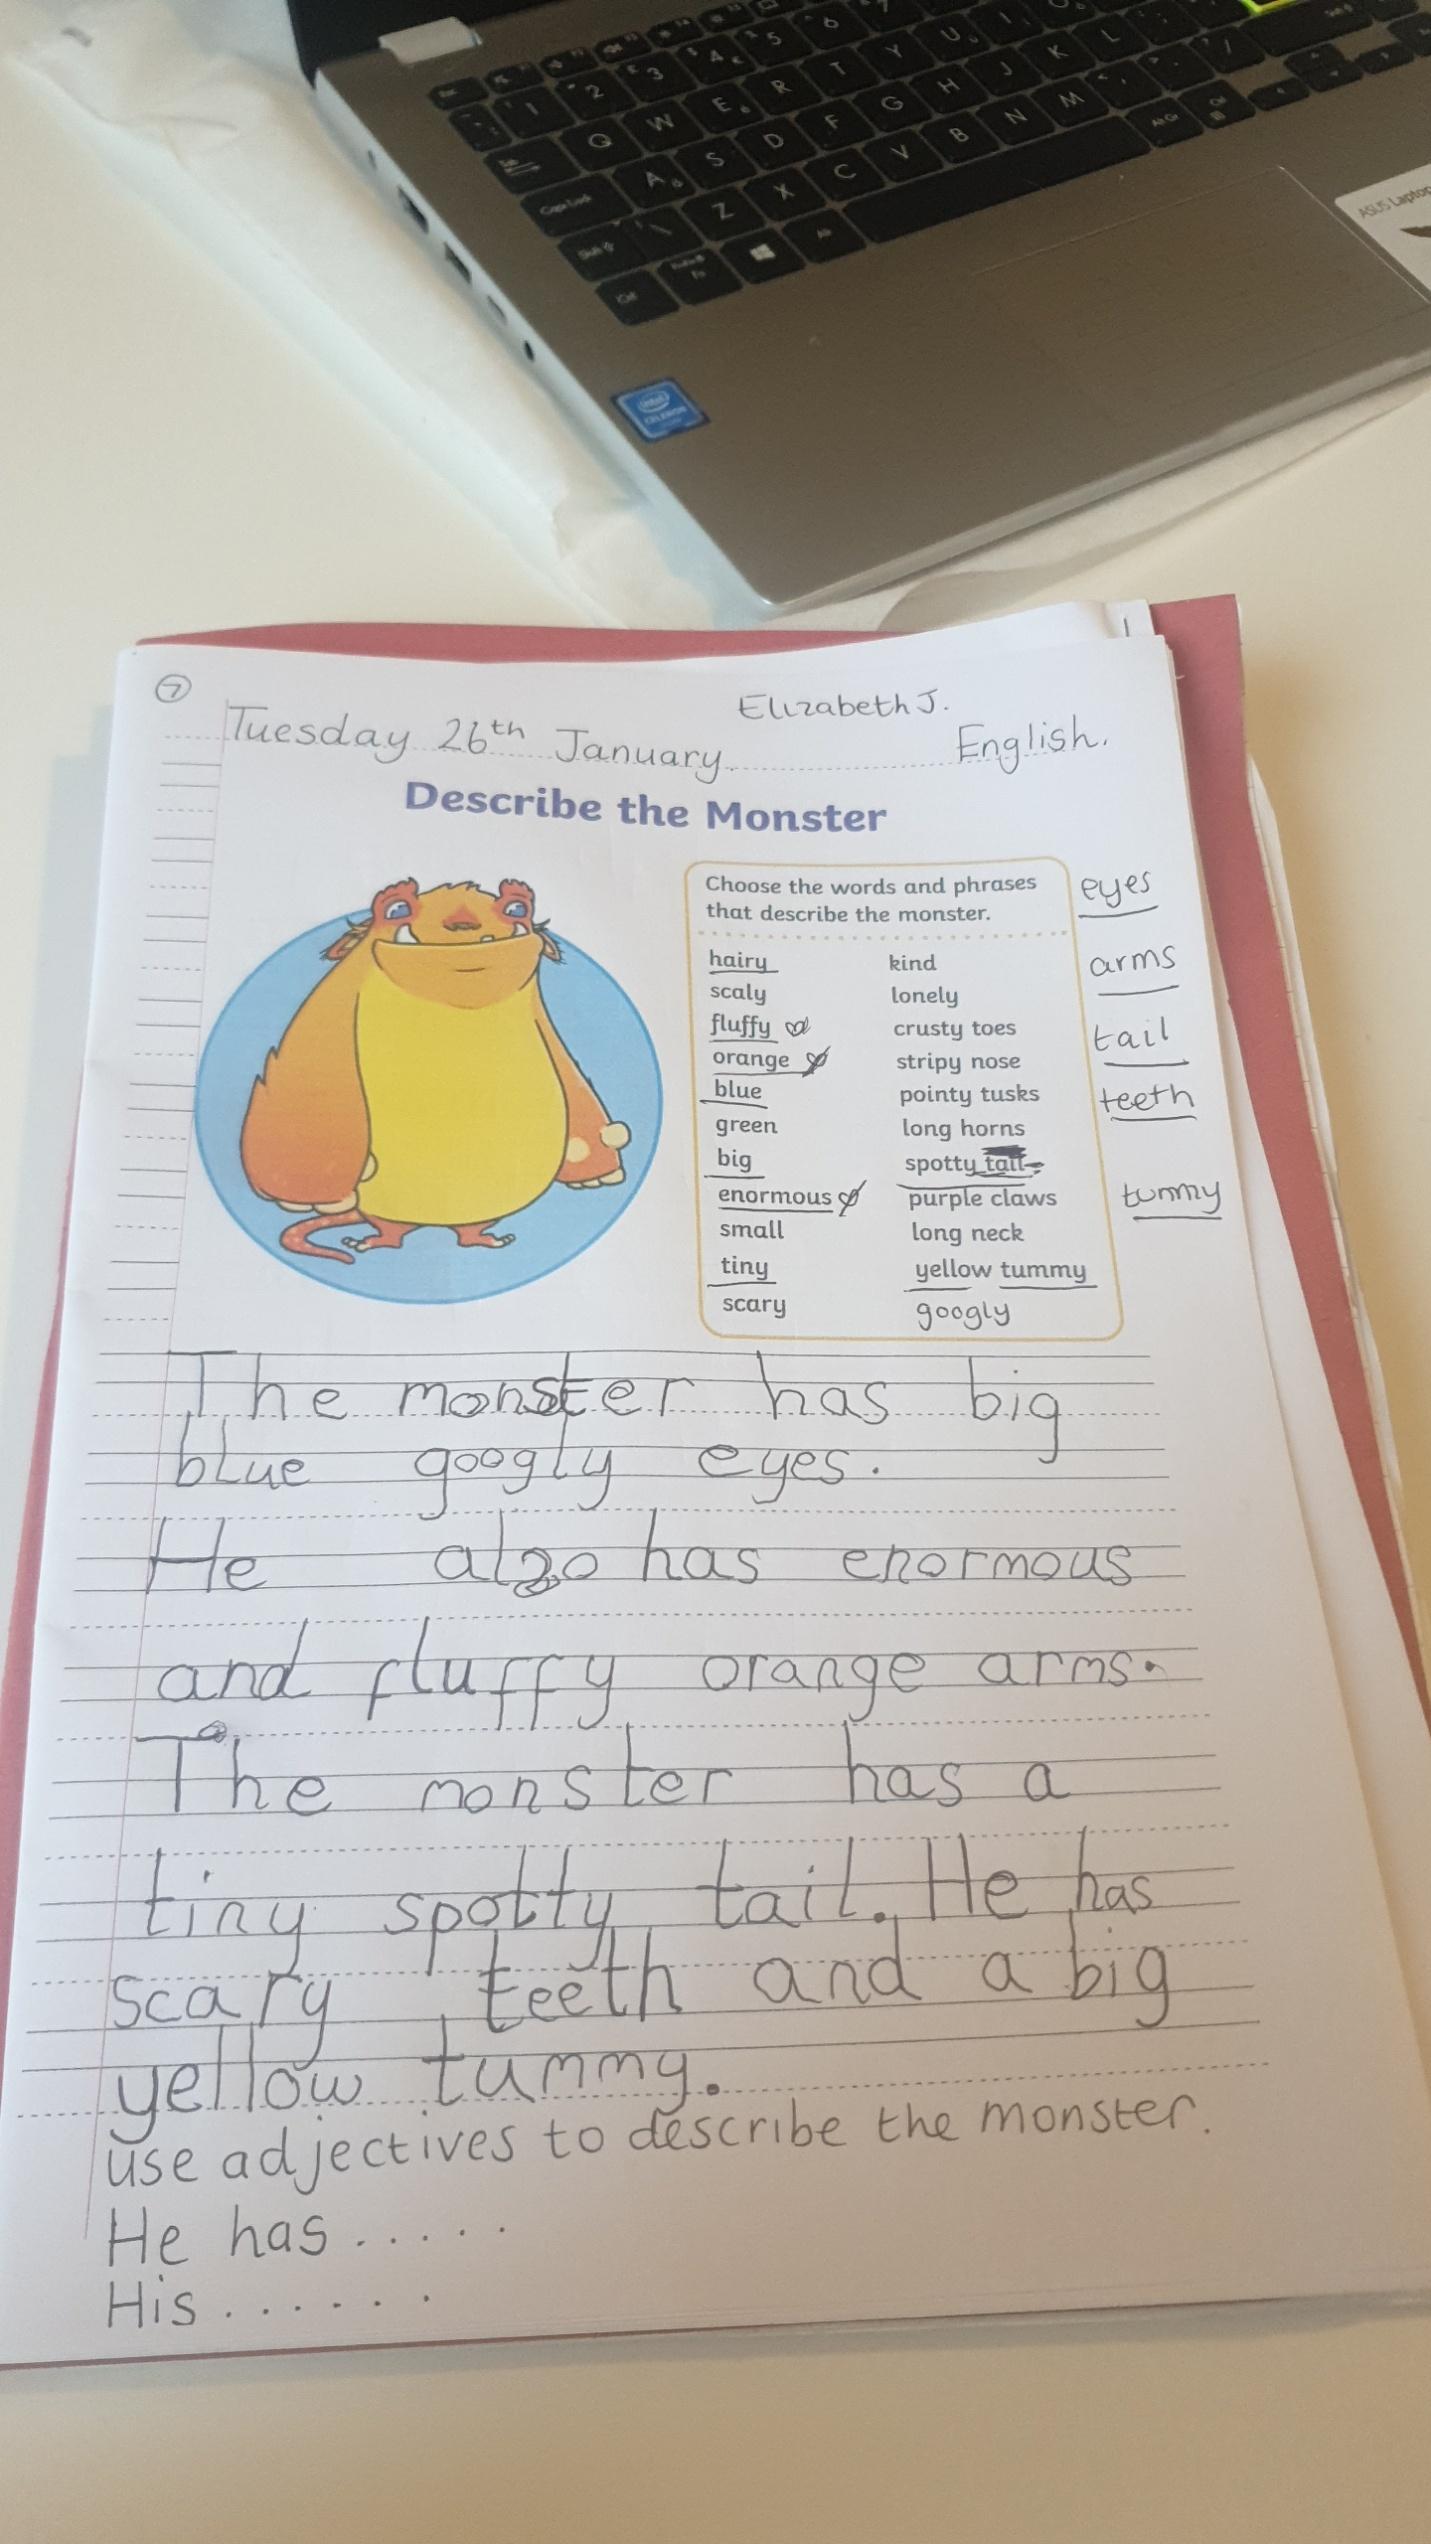 7
Elizabeth J.
Tuesday 26th January
English.
Describe the Monster
Choose the words and phrases
that describe the monster.
hairy
scaly
fluffy
orange
blue
green
big
enormous
small
tiny
scary
kind
lonely
crusty toes
stripy nose
pointy tusks
long horns
spotty tail
purple claws
long neck
yellow tummy
googly
eyes
arms
tail
teeth
tummy
The monster has big
blue googly eyes.
He also has enormous
and fluffy orange arms.
The monster has a
tiny spotty tail. He has
scary teeth and a big
yellow tummy.
use adjectives to describe the monster.
He has .....
His ......
ASUS Laptop
intel
CELERON
1 2 3 4 5 6 7
Q W E R T Y U I
Caps Lock A S D F G H J K L
Shift Z X C V B N M
Ctrl Fn Alt Alt Gr Ctrl